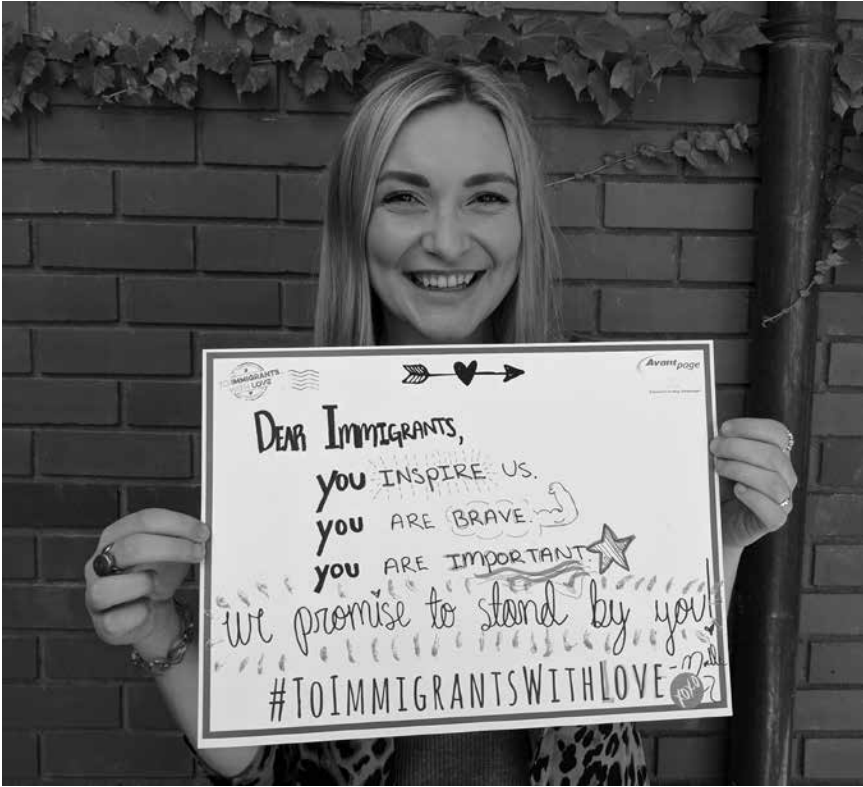 TO IMMIGRANTS
WITH LOVE
Avantpage
DEAR IMMIGRANTS,
you INSPIRE US.
you ARE BRAVE.
you ARE IMPORTANT.
we promise to stand by you!
#TOIMMIGRANTSWITHLOVE
xoxo